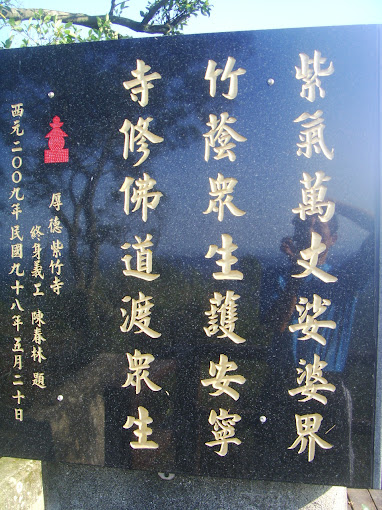 紫氣萬丈娑婆界
竹蔭眾生護安寧
寺修佛道渡眾生
厚德紫竹寺
終身義工 陳春林 題
西元二00九年民國九十八年五月二十日